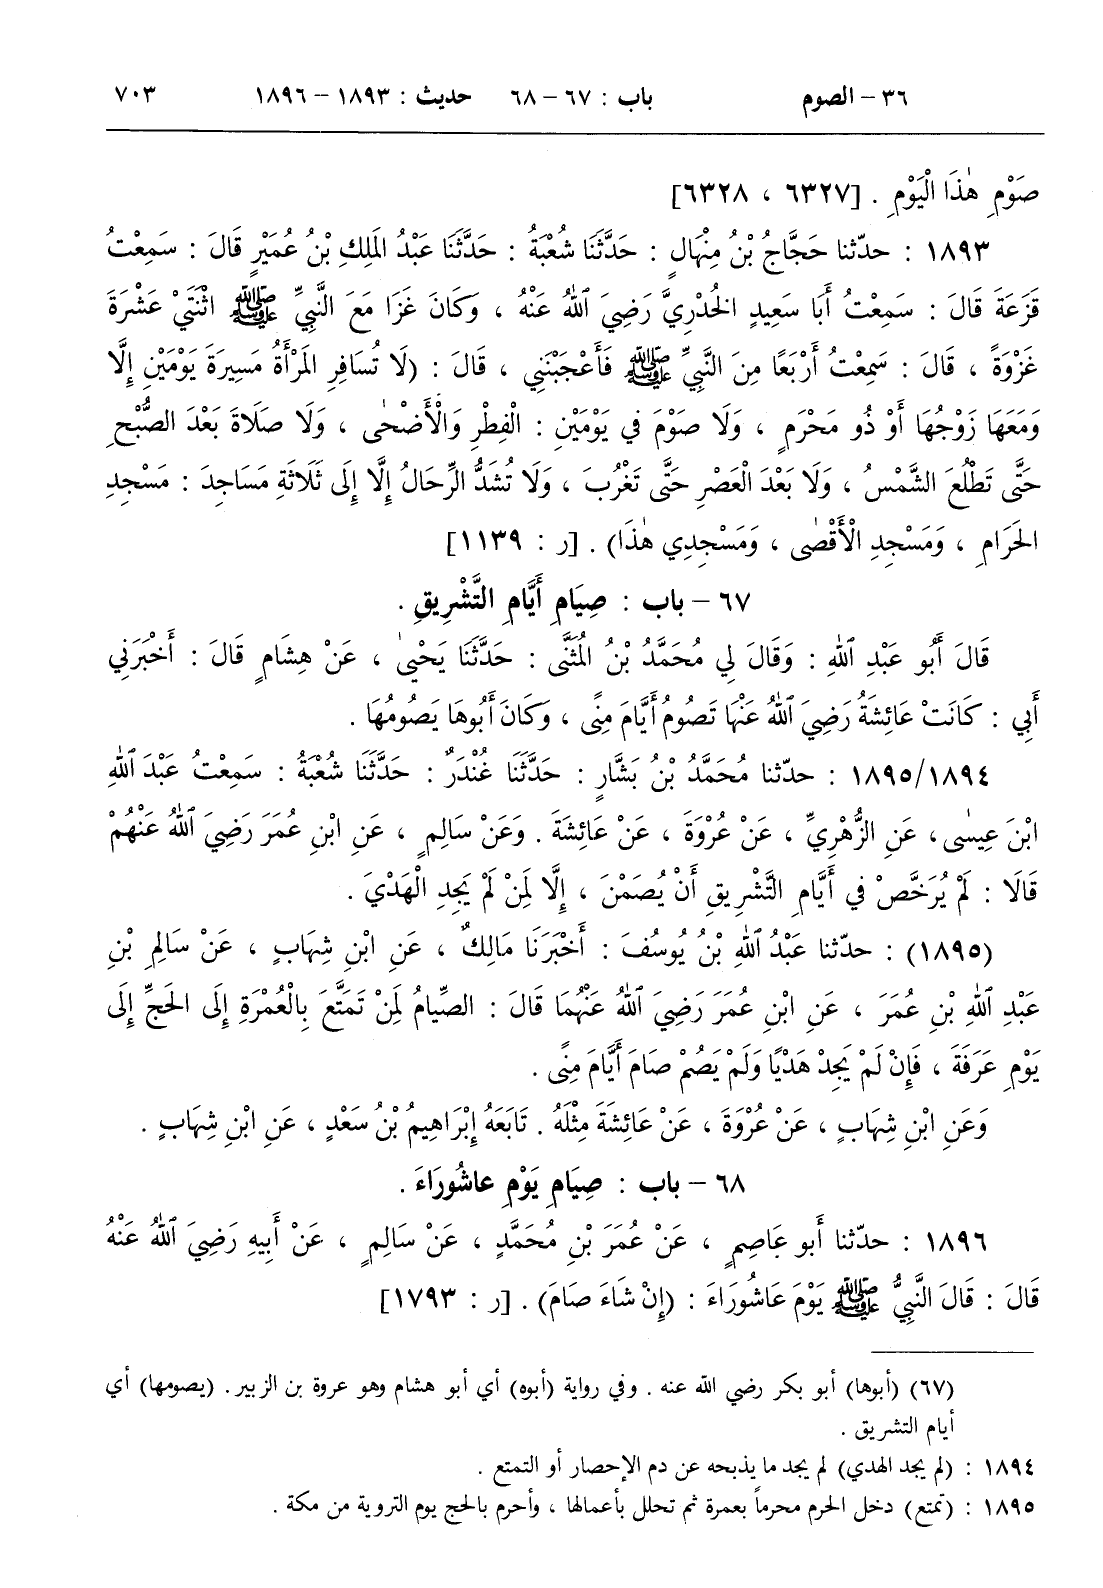 ٣٦ – الصوم باب : ٦٧ – ٦٨ حديث : ١٨٩٣ – ١٨٩٦ ٧٠٣
صَوْمِ هٰذَا الْيَوْمِ . [٦٣٢٧ ، ٦٣٢٨]
١٨٩٣ : حدّثنا حَجَّاجُ بْنُ مِنْهَالٍ : حَدَّثَنَا شُعْبَةُ : حَدَّثَنَا عَبْدُ المَلِكِ بْنُ عُمَيْرٍ قَالَ : سَمِعْتُ
قَزَعَةَ قَالَ : سَمِعْتُ أَبَا سَعِيدٍ الخُدْرِيَّ رَضِيَ ٱللهُ عَنْهُ ، وَكَانَ غَزَا مَعَ النَّبِيِّ ﷺ اثْنَتَيْ عَشْرَةَ
غَزْوَةً ، قَالَ : سَمِعْتُ أَرْبَعًا مِنَ النَّبِيِّ ﷺ فَأَعْجَبْنَنِي ، قَالَ : (لَا تُسَافِرِ المَرْأَةُ مَسِيرَةَ يَوْمَيْنِ إِلَّا
وَمَعَهَا زَوْجُهَا أَوْ ذُو مَحْرَمٍ ، وَلَا صَوْمَ فِي يَوْمَيْنِ : الْفِطْرِ وَالْأَضْحٰى ، وَلَا صَلَاةَ بَعْدَ الصُّبْحِ
حَتَّى تَطْلُعَ الشَّمْسُ ، وَلَا بَعْدَ الْعَصْرِ حَتَّى تَغْرُبَ ، وَلَا تُشَدُّ الرِّحَالُ إِلَّا إِلَى ثَلَاثَةِ مَسَاجِدَ : مَسْجِدِ
الحَرَامِ ، وَمَسْجِدِ الْأَقْصٰى ، وَمَسْجِدِي هٰذَا) . [ر : ١١٣٩]
٦٧ – باب : صِيَامِ أَيَّامِ التَّشْرِيقِ .
قَالَ أَبُو عَبْدِ ٱللهِ : وَقَالَ لِي مُحَمَّدُ بْنُ المُثَنَّى : حَدَّثَنَا يَحْيىٰ ، عَنْ هِشَامٍ قَالَ : أَخْبَرَنِي
أَبِي : كَانَتْ عَائِشَةُ رَضِيَ ٱللهُ عَنْهَا تَصُومُ أَيَّامَ مِنًى ، وَكَانَ أَبُوهَا يَصُومُهَا .
١٨٩٥/١٨٩٤ : حدّثنا مُحَمَّدُ بْنُ بَشَّارٍ : حَدَّثَنَا غُنْدَرٌ : حَدَّثَنَا شُعْبَةُ : سَمِعْتُ عَبْدَ ٱللهِ
ابْنَ عِيسٰى ، عَنِ الزُّهْرِيِّ ، عَنْ عُرْوَةَ ، عَنْ عَائِشَةَ . وَعَنْ سَالِمٍ ، عَنِ ابْنِ عُمَرَ رَضِيَ ٱللهُ عَنْهُمْ
قَالَا : لَمْ يُرَخَّصْ فِي أَيَّامِ التَّشْرِيقِ أَنْ يُصَمْنَ ، إِلَّا لِمَنْ لَمْ يَجِدِ الْهَدْيَ .
(١٨٩٥) : حدّثنا عَبْدُ ٱللهِ بْنُ يُوسُفَ : أَخْبَرَنَا مَالِكٌ ، عَنِ ابْنِ شِهَابٍ ، عَنْ سَالِمِ بْنِ
عَبْدِ ٱللهِ بْنِ عُمَرَ ، عَنِ ابْنِ عُمَرَ رَضِيَ ٱللهُ عَنْهُمَا قَالَ : الصِّيَامُ لِمَنْ تَمَتَّعَ بِالْعُمْرَةِ إِلَى الحَجِّ إِلَى
يَوْمِ عَرَفَةَ ، فَإِنْ لَمْ يَجِدْ هَدْيًا وَلَمْ يَصُمْ صَامَ أَيَّامَ مِنًى .
وَعَنِ ابْنِ شِهَابٍ ، عَنْ عُرْوَةَ ، عَنْ عَائِشَةَ مِثْلَهُ . تَابَعَهُ إِبْرَاهِيمُ بْنُ سَعْدٍ ، عَنِ ابْنِ شِهَابٍ .
٦٨ – باب : صِيَامِ يَوْمِ عاشُورَاءَ .
١٨٩٦ : حدّثنا أَبو عَاصِمٍ ، عَنْ عُمَرَ بْنِ مُحَمَّدٍ ، عَنْ سَالِمٍ ، عَنْ أَبِيهِ رَضِيَ ٱللهُ عَنْهُ
قَالَ : قَالَ النَّبِيُّ ﷺ يَوْمَ عَاشُورَاءَ : (إِنْ شَاءَ صَامَ) . [ر : ١٧٩٣]
(٦٧) (أبوها) أبو بكر رضي الله عنه . وفي رواية (أبوه) أي أبو هشام وهو عروة بن الزبير . (يصومها) أي
أيام التشريق .
١٨٩٤ : (لم يجد الهدي) لم يجد ما يذبحه عن دم الإحصار أو التمتع .
١٨٩٥ : (تمتع) دخل الحرم محرماً بعمرة ثم تحلل بأعمالها ، وأحرم بالحج يوم التروية من مكة .